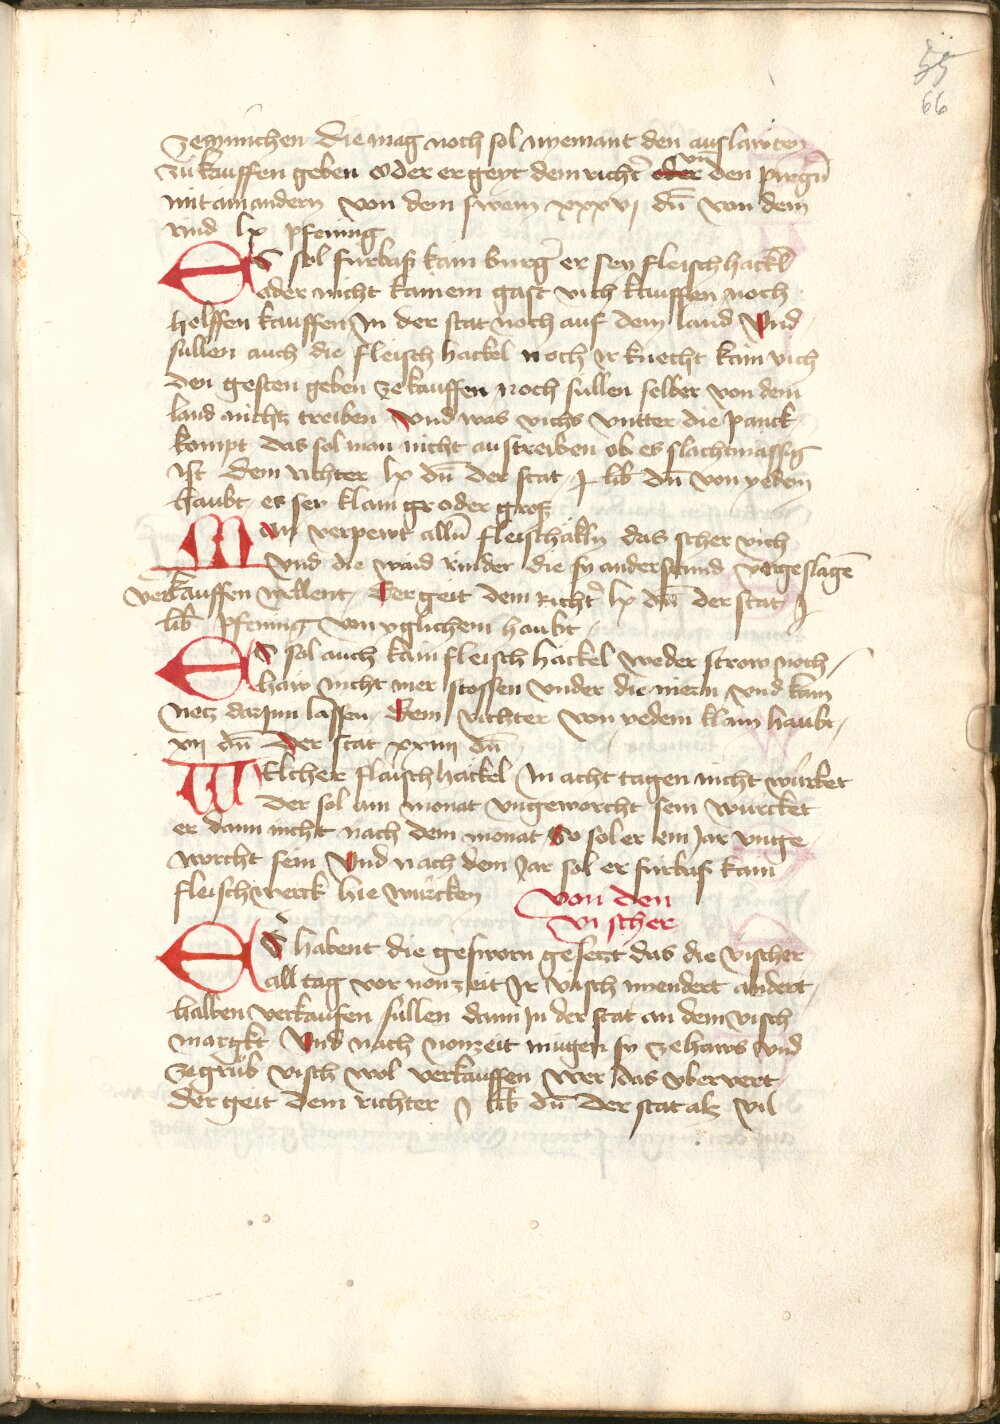 55
66
zemünichen die mag noch sol nyemant den auslawten
zu kauffen geben oder er geyt dem richt̄ vn̄ den purgn̄
mit ainandern von dem swein xxxvj dn̄ von dem
rind lx pfening
Es sol furbas kain burḡ er sey fleischhackl
oder nicht kainem gast vich kauffen noch
helffen kauffen In der stat noch auf dem land Vnd
sullen auch die fleischhackel noch Ir knecht kain vich
den gesten geben ze kauffen noch sullen selber von dem
land nichtz treiben Vnd was vichs vntter die panck
kompt das sol man nicht austreiben ob es slachtmässig
ist dem richter lx dn̄ der stat j lib dn̄ von yedem
haubt es sey klain gr oder gros
Man verpewt alln̄ fleischäkln das scher vich
Vnd die waid rinder die sy anderstund vorgeslagē
verkauffen wellent Der geit dem richt̄ lx dn̄ der stat j
lib pfening von yglichem haubt
Es sol auch kain fleisch hackel weder strow noch
haw nicht mer stossen vnder die niern vnd kain
netz darjnn lassen Dem richter von yedem klain haubt
xij dn̄ Der stat xxiiij dn̄
Welcher flaischhackel In acht tagen nicht würket
der sol ain monat vngeworcht sein wurcket
er dann nicht nach dem monat So sol er ein Jar vnge
worcht sein Vnd nach dem Jar sol er furbas kain
fleischwerck hie würcken
Von den
vischer
Es habent die gesworn gesetzt das die vischer
all tag vor nonzeit Ir visch niendert andert
halben verkaufen sullen dann in der stat an dem visch
margkt Vnd nach nonzeit mügen sy ze haws vnd
ze grub visch wol verkauffen wer das vbervert
der geit dem richter j lib dn̄ der stat als vil